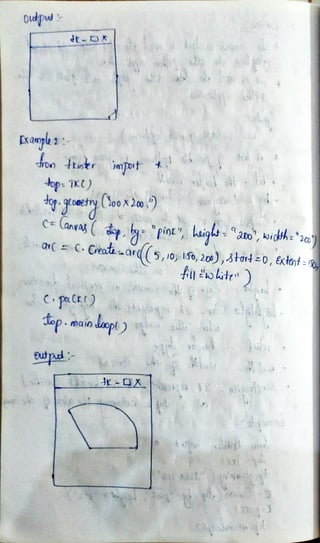 Output :-
tk - □ X
Example 2 :-
from tkinter import *
top = TK()
top.geometry ("200 x 200")
C = Canvas ( top, bg = "pink", height = "200", width = "200")
arc = C. Create_arc((5, 10, 150, 200), start = 0, extent = 150,
fill = "white" )
C. pack( )
top. mainloop( )
output :-
tk - □ X